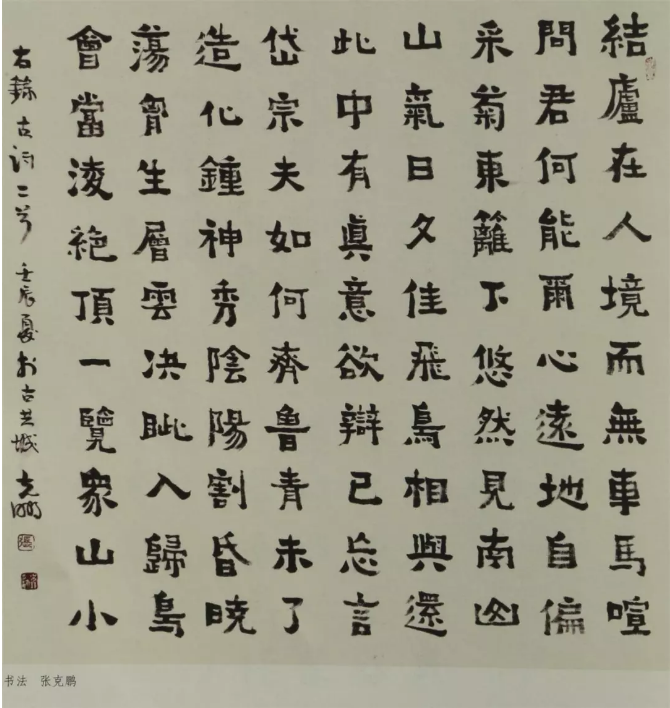 結廬在人境而無車馬喧
問君何能爾心遠地自偏
采菊東籬下悠然見南山
山氣日夕佳飛鳥相與還
此中有真意欲辯已忘言
岱宗夫如何齊魯青未了
造化鍾神秀陰陽割昏曉
蕩胷生層雲決眦入歸鳥
會當淩絶頂一覽衆山小
右錄古詩二首壬辰夏於古共城克鹏
书法 张克鹏